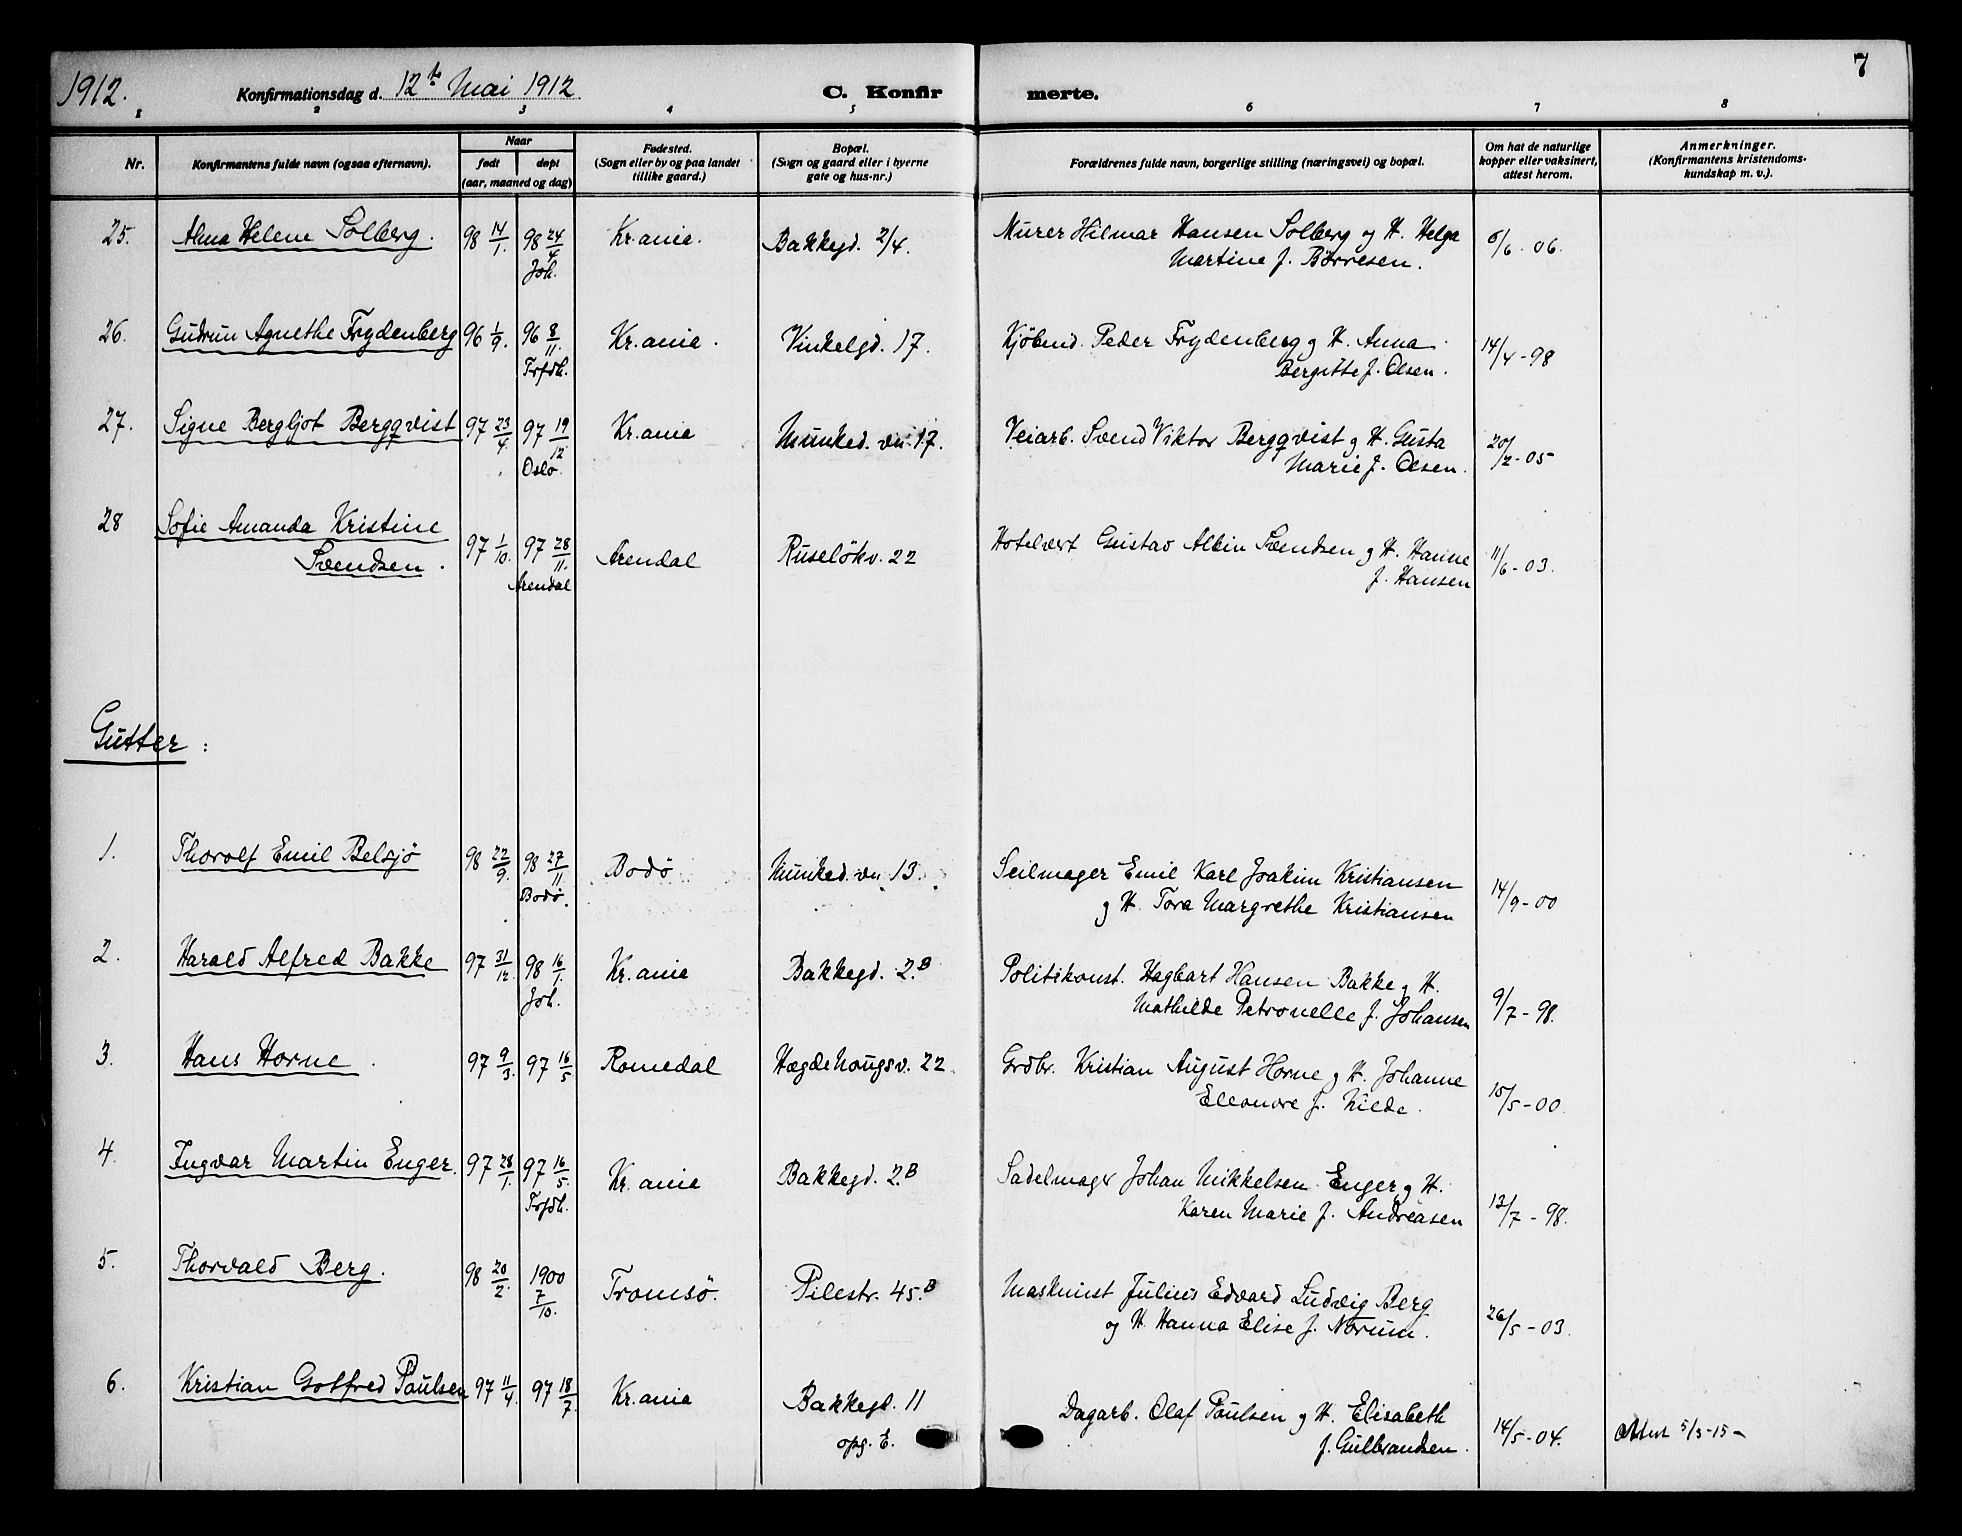 7
1912.
Konfirmationsdag d. 12te Mai 1912
C. Konfirmerte.
1 2 3 4 5 6 7 8
Nr.
Konfirmantens fulde navn (ogsaa efternavn).
Naar
født
døpt
(aar, maaned og dag)
Fødested.
(Sogn eller by og paa landet
tillike gaard.)
Bopæl.
(Sogn og gaard eller i byerne
gate og hus-nr.)
Forældrenes fulde navn, borgerlige stilling (næringsvei) og bopæl.
Om hat de naturlige
kopper eller vaksinert,
attest herom.
Anmerkninger.
(Konfirmantens kristendoms-
kundskap m. v.).
25. Alma Helene Solberg. 98 14/1. 98 24/4 Joh. Kr.ania. Bakkegd. 2/4. Murer Hilmar Hansen Solberg og H. Helga
Martine f. Börresen. 6/6. 06.
26. Gudrun Agnethe Frydenberg 96 1/9. 96 8/11. Trfdh. Kr.ania. Vinkelgd. 17. Kjöbmd. Peder Frydenberg og H. Anna
Bergitte f. Olsen. 14/4-98
27. Signe Bergljot Bergqvist 97 23/4. 97 19/12 Oslo. Kr.ania Munked.vn. 17. Veiarb. Svend Viktor Bergqvist og H. Gusta
Marie f. Olsen. 20/2-05
28 Sofie Amanda Kristine
Svendsen. 97 1/10. 97 28/11. Arendal Arendal Ruselökv. 22 Hotelvert Gustav Albin Svendsen og H. Hanne
f. Hansen 11/6-03.
Gutter:
1. Thorolf Emil Belsjö 98 22/9. 98 27/11 Bodö. Bodö Munked.vn 13. Seilmager Emil Karl Joakim Kristiansen
og H. Tora Margrethe Kristiansen 14/9-00
2. Harald Alfred Bakke 97 31/12 98 16/1. Joh. Kr.ania Bakkegd. 2.B Politikonst. Hagbart Hansen Bakke og H.
Mathilde Petronelle f. Johansen 9/7-98.
3. Hans Horne. 97 9/3. 97 16/5 Romedal Hægdehougsv. 22. Grdbr. Kristian August Horne og H. Johanne
Eleonore f. Kilde. 15/5-00.
4. Ingvar Martin Enger. 97 28/1. 97 16/5. Trfdh. Kr. ania Bakkegd. 2.B Sadelmager Johan Mikkelsen Enger og H.
Karen Marie f. Andreasen 13/7-98.
5. Thorvald Berg. 98 20/2. 1900 7/10. Tromsö. Pilestr. 45.B Maskinist Julius Edvard Ludvig Berg
og H. Hanna Elise f. Norum. 26/5-03.
6. Kristian Gotfred Paulsen 97 11/4. 97 18/7. Kr.ania Bakkegd. 11
opg. E. Dagarb. Olaf Paulsen og H. Elisabeth
f. Gulbrandsen. 14/5-04. Attest 5/3-15-